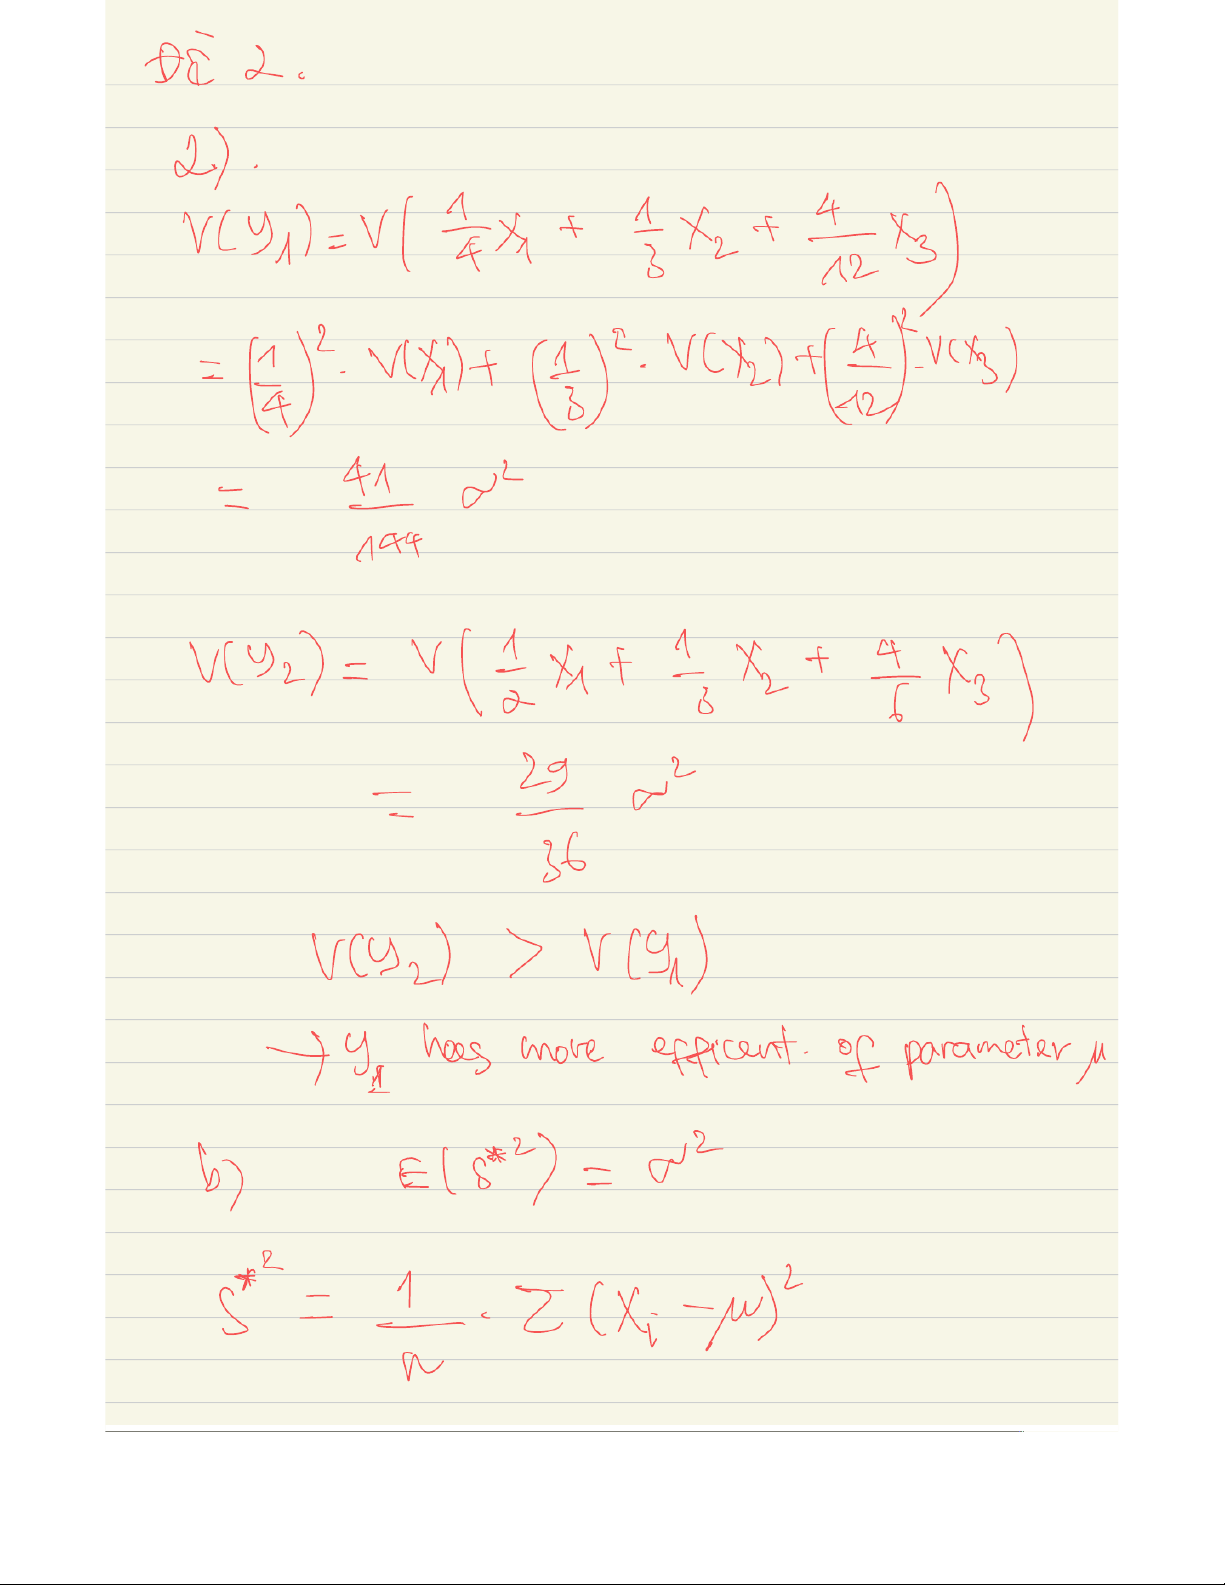 ĐỀ 2.
2).
V(y₁) = V( 1/4 X₁ + 1/3 X₂ + 4/12 X₃ )
= (1/4)² . V(X₁) + (1/3)² . V(X₂) + (4/12)² . V(X₃)
= 41/144 σ²
V(y₂) = V( 1/2 X₁ + 1/3 X₂ + 4/6 X₃ )
= 29/36 σ²
V(y₂) > V(y₁)
→ y₁ has more efficent. of parameter μ
b) E(S*²) = σ²
S*² = 1/n . Σ (Xᵢ - μ)²